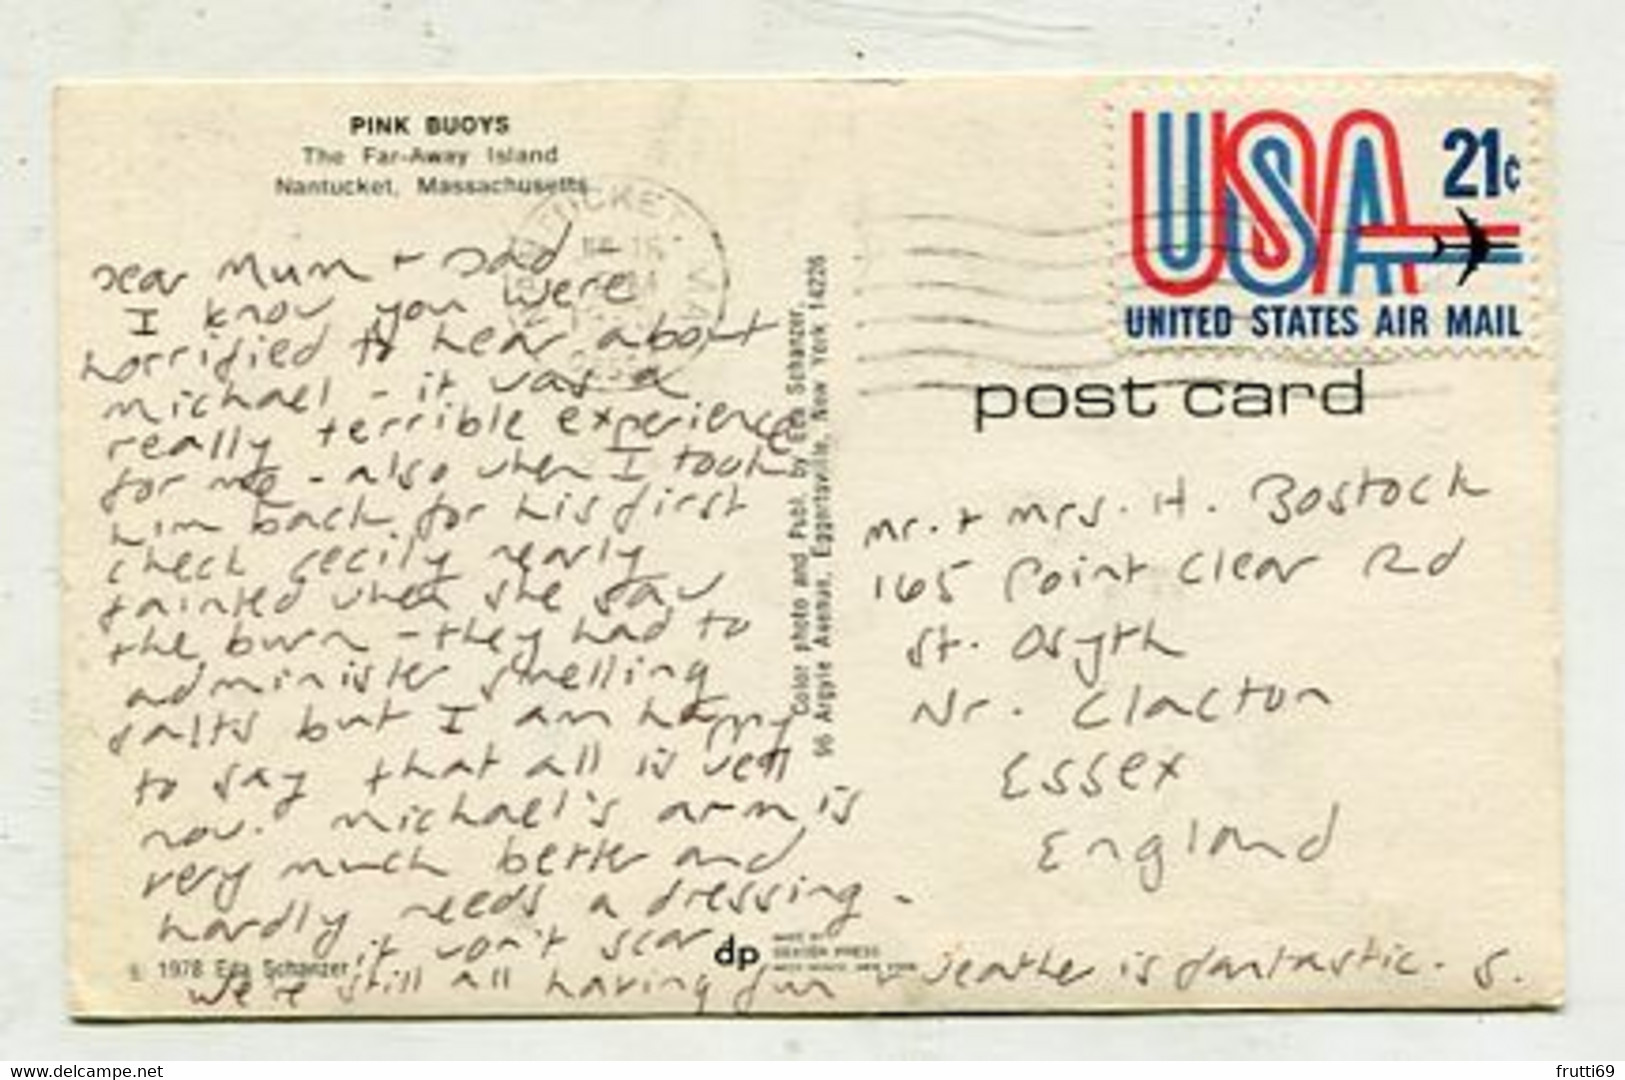 PINK BUOYS
The Far-Away Island
Nantucket, Massachusetts
Dear Mum + Dad
I know you were
horrified to hear about
Michael - it was a
really terrible experience
for me - also when I took
him back for his first
check Cecily nearly
fainted when she saw
the burn - they had to
administer smelling
salts but I am happy
to say that all is well
now. Michael's arm is
very much better and
hardly needs a dressing -
it won't scar
We're still all having fun + weather is fantastic. S.
© 1978 Eda Schanzer
Color photo and Publ. by Eda Schanzer,
96 Argyle Avenue, Eggertsville, New York 14226
dp
MADE BY
DEXTER PRESS
WEST NYACK, NEW YORK
USA 21c
UNITED STATES AIR MAIL
post card
Mr. + Mrs. H. Bostock
165 Point Clear Rd
St. Osyth
Nr. Clacton
Essex
England
frutti69